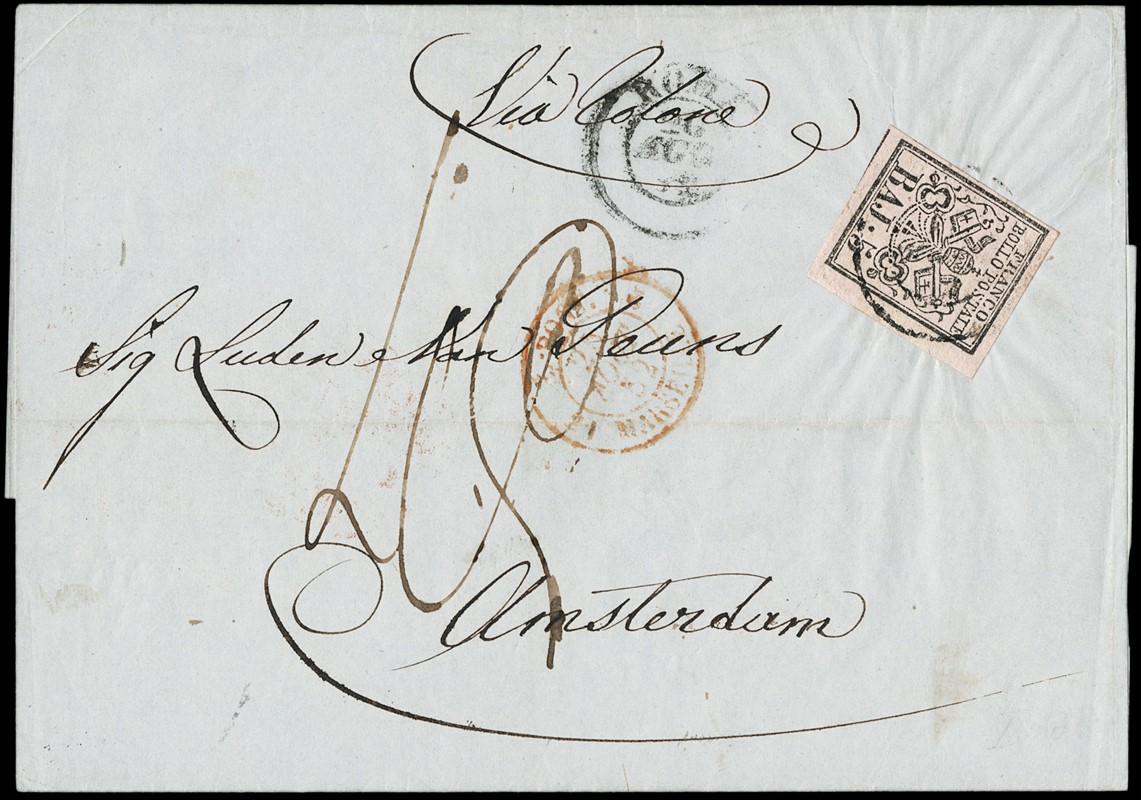 Via Colone
ROMA
FRANCO
BOLLO POSTALE
BAJ:
Sig Luden Van Geuns
MARSEILLE
52
Amsterdam